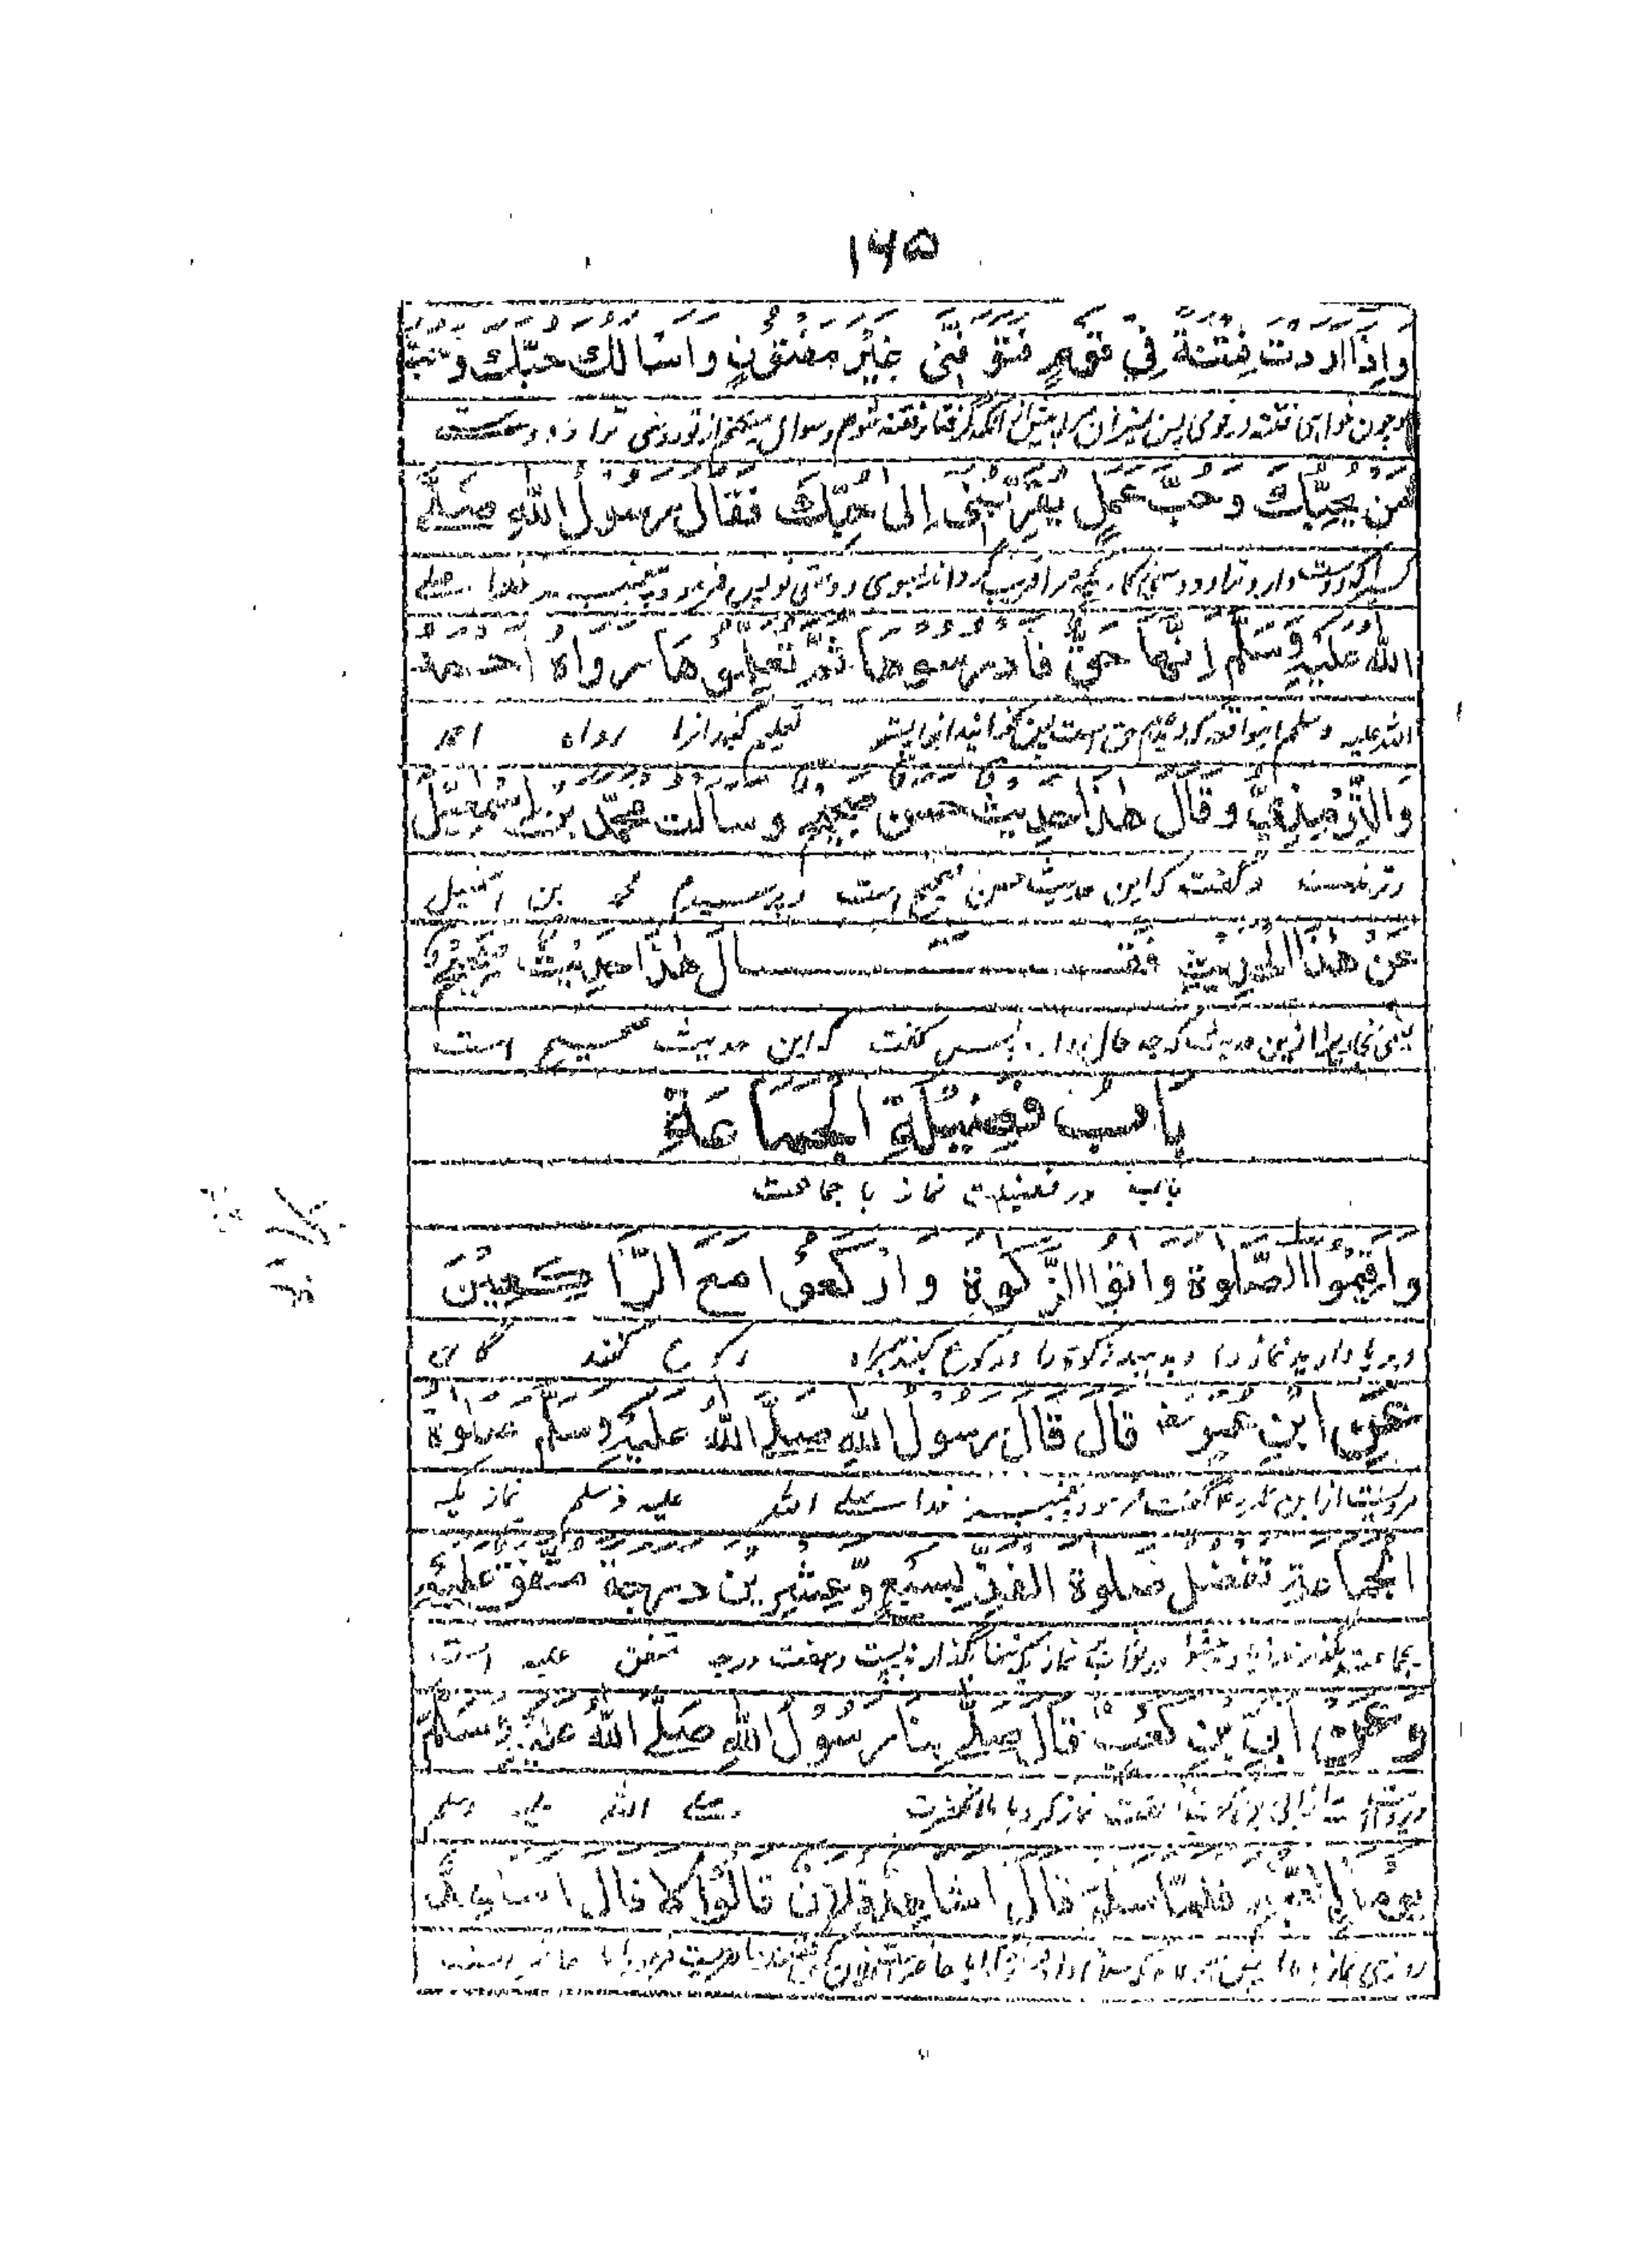 ۱۶۵
وَاِذَا اَرَدْتَ فِتْنَةً فِيْ قَوْمٍ فَتَوَفَّنِيْ غَيْرَ مَفْتُوْنٍ وَاَسْأَلُكَ حُبَّكَ وَحُبَّ
وچون خواهی فتنه در قومی پس بمیران مرا آنکه گرفتار فتنه شوم وسوال میکنم از تو دوستی ترا ودوستی
مَنْ يُحِبُّكَ وَحُبَّ عَمَلٍ يُقَرِّبُنِيْ اِلٰى حُبِّكَ فَقَالَ رَسُوْلُ اللهِ صَلَّى
کسیکه دوست دارد ترا ودوستی کاریکه مرا قریب گرداند بسوی دوستی تو پس فرمود پیغمبر خدا صلے
اللهُ عَلَيْهِ وَسَلَّمَ اِنَّهَا حَقٌّ فَادْرُسُوْهَا ثُمَّ تَعَلَّمُوْهَا رَوَاهُ اَحْمَدُ
الله علیه وسلم این واقعه که دیدم حق است پس تعلیم گیرید آنرا رواه احمد
وَالتِّرْمِذِيُّ وَقَالَ هٰذَا حَدِيْثٌ حَسَنٌ صَحِيْحٌ وَسَأَلْتُ مُحَمَّدَ بْنَ اِسْمٰعِيْلَ
وترمذی وگفت که این حدیث حسن صحیح است وپرسیدم محمد بن اسمعیل
عَنْ هٰذَا الْحَدِيْثِ فَقَالَ هٰذَا حَدِيْثٌ صَحِيْحٌ
یعنی بخاری را ازین حدیث که چه حال دارد پس گفت که این حدیث صحیح است
بَابُ فَضِيْلَةِ الْجَمَاعَةِ
باب در فضیلت نماز با جماعت
وَاَقِيْمُوا الصَّلٰوةَ وَاٰتُوا الزَّكٰوةَ وَارْكَعُوْا مَعَ الرَّاكِعِيْنَ
وبرپا دارید نماز را وبدهید زکوة را ورکوع کنید همراه رکوع کنند گان
عَنِ ابْنِ عُمَرَ قَالَ قَالَ رَسُوْلُ اللهِ صَلَّى اللهُ عَلَيْهِ وَسَلَّمَ صَلٰوةُ
مرویست از ابن عمر گفت فرمود پیغمبر خدا صلے الله علیه وسلم نماز یکه
الْجَمَاعَةِ تَفْضُلُ صَلٰوةَ الْفَذِّ بِسَبْعٍ وَّعِشْرِيْنَ دَرَجَةً مُتَّفَقٌ عَلَيْهِ
بجماعت گذارند در ثواب نماز که تنها گذارند بیست وهفت درجه متفق علیه است
وَعَنْ اُبَيِّ بْنِ كَعْبٍ قَالَ صَلّٰى بِنَا رَسُوْلُ اللهِ صَلَّى اللهُ عَلَيْهِ وَسَلَّمَ
ابی بن کعب گفت نماز کرد با ما آنحضرت صلے الله علیه وسلم
يَوْمًا الصُّبْحَ فَلَمَّا سَلَّمَ قَالَ اَشَاهِدٌ فُلَانٌ قَالُوْا لَا قَالَ اَشَاهِدٌ
روزی نماز پس